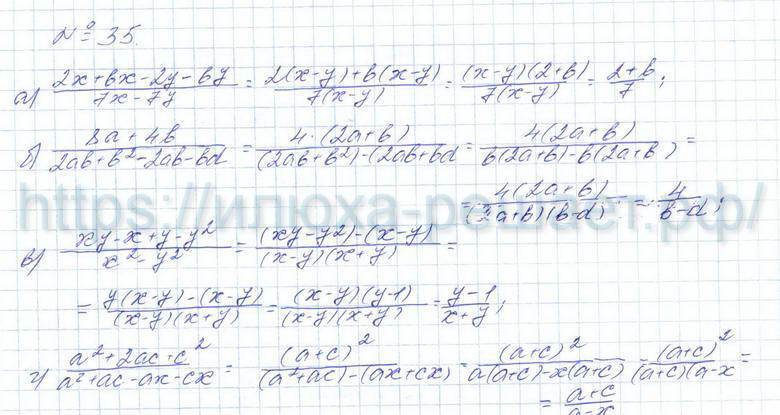 № 35.
а) (2x + bx - 2y - by)/(7x - 7y) = (2(x-y) + b(x-y))/(7(x-y)) = ((x-y)(2+b))/(7(x-y)) = (2+b)/7 ;
б) (8a + 4b)/(2ab + b² - 2ab - bd) = (4·(2a+b))/((2ab + b²) - (2ab + bd) = (4(2a+b))/(b(2a+b) - b(2a+b)) =
= (4(2a+b))/((2a+b)(b-d)) = 4/(b-d) ;
https://илюха-репласт.рф/
в) (xy - x + y - y²)/(x² - y²) = ((xy - y²) - (x-y))/((x-y)(x+y)) =
= (y(x-y) - (x-y))/((x-y)(x+y)) = ((x-y)(y-1))/((x-y)(x+y)) = (y-1)/(x+y) ;
г) (a² + 2ac + c²)/(a² + ac - ax - cx) = (a+c)²/((a² + ac) - (ax + cx)) = (a+c)²/(a(a+c) - x(a+c)) = (a+c)²/((a+c)(a-x) =
= (a+c)/(a-x)